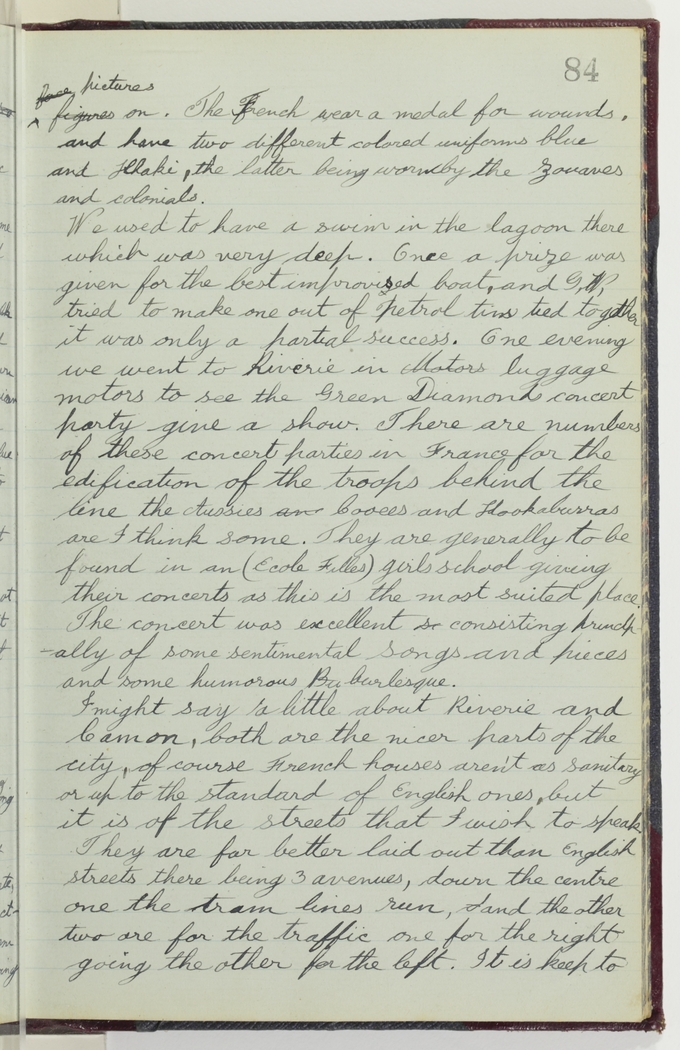 84
face pictures
figures on. The French wear a medal for wounds,
and have two different colored uniforms blue
and Khaki, the latter being worn by the Zouaves
and colonials.
We used to have a swim in the lagoon there
which was very deep. Once a prize was
given for the best improvised boat, and
tried to make one out of petrol tins tied together
it was only a partial success. One evening
we went to Riverie in Motors luggage
motors to see the Green Diamonds concert
party give a show. There are numbers
of these concert parties in France for the
edification of the troops behind the
line the Aussies an Cooees and Kookaburras
are I think some. They are generally to be
found in an (Ecole Filles) girls school giving
their concerts as this is the most suited place.
The concert was excellent so consisting princip
-ally of some sentimental songs and pieces
and some humorous Bu burlesque.
I might say a little about Riverie and
Camon, both are the nicer parts of the
city, of course French houses aren't as sanitary
or up to the standard of English ones, but
it is of the streets that I wish to speak
They are far better laid out than English
streets there being 3 avenues, down the centre
one the tram lines run, and the other
two are for the traffic one for the right
going the other for the left. It is keep to